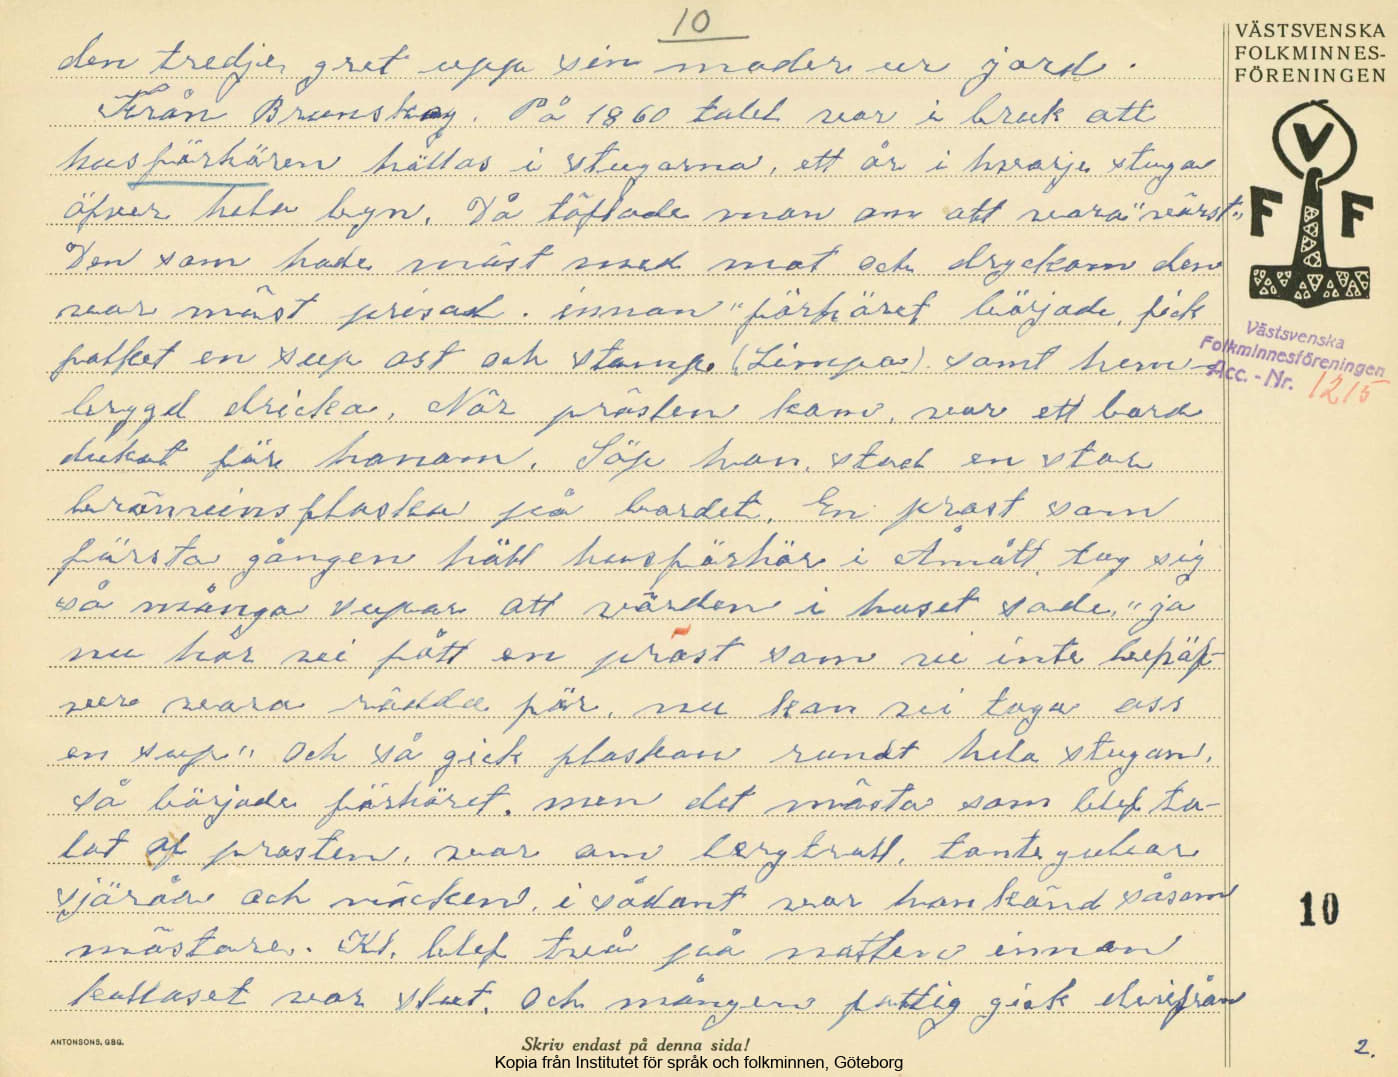 10
VÄSTSVENSKA
FOLKMINNES-
FÖRENINGEN
V
F F
den tredje gret upp sin moder ur jord.
Från Brunskog. På 1860 talet var i bruk att
husförhören hållas i stugorna, ett år i hvarje stuga
öfver hela byn. Då töflade man om att vara "värst"
Den som hade mäst med mat och dryckom den
var mäst prisad. innan "förhöret började, fick
folket en sup ost och stomp. (Limpa). samt hem-
brygd dricka. När prästen kom, var ett bord
dukat för honom. Söp han, stod en stor
brännvinsflaska på bordet. En prost som
första gången höll husförhör i Åmått, tog sig
så många supar att värden i huset sade, "ja
nu hör vi fått en präst som vi inte behöf-
ver vara rädda för, nu kan vi taga oss
en sup" och så gick flaskan rundt hela stugan.
så började förhöret. men det mästa som blef ta-
lat af prosten, var om bergtroll, tomtegubar
sjörår och näcken, i sådant var han känd såsom
mästare. Kl. blef två på natten innan
kallaset var slut. Och mången fattig gick derifrån
Västsvenska
Folkminnesföreningen
Acc. - Nr. 1215
10
ANTONSONS, GBG.
Skriv endast på denna sida!
2.
Kopia från Institutet för språk och folkminnen, Göteborg